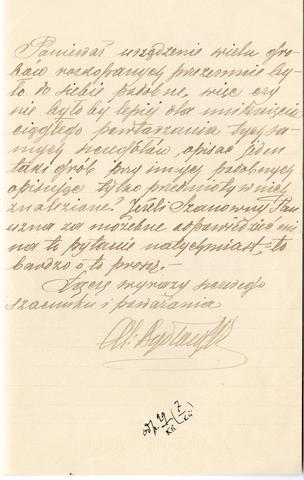 Ponieważ urządzenie wielu gro-
bów rozkopanych przezemnie by-
ło do siebie podobne, więc czy
nie byłoby lepiej dla uniknięcia
ciągłego powtarzania tych sa-
mych szczegółów, opisać jeden
taki grób przy innych podobnych
opisując tylko przedmioty w nich
znalezione? Jeżeli Szanowny Pan
uzna za możebne odpowiedzieć mi
na to pytanie natychmiast, to
bardzo o to proszę.—
Łączę wyrazy
szacunku i poważania
odp. 29/XII (7/XII)